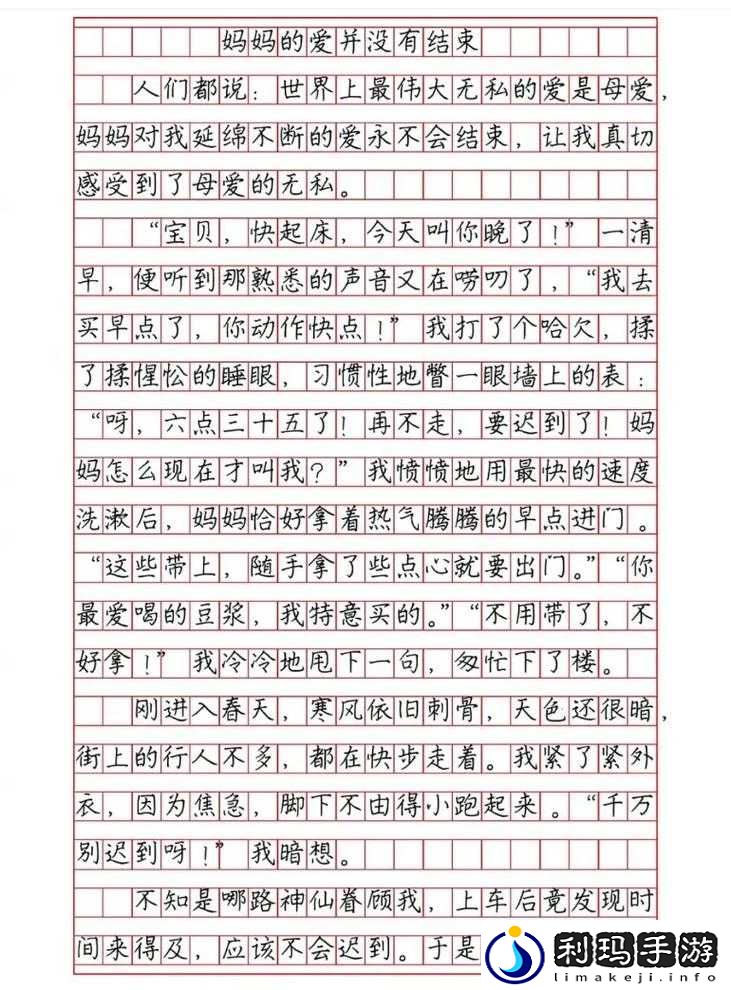 妈妈的爱并没有结束
人们都说：世界上最伟大无私的爱是母爱，
妈妈对我延绵不断的爱永不会结束，让我真切
感受到了母爱的无私。
“宝贝，快起床，今天叫你晚了！”一清
早，便听到那熟悉的声音又在唠叨了，“我去
买早点了，你动作快点！”我打了个哈欠，揉
了揉惺忪的睡眼，习惯性地瞥一眼墙上的表：
“呀，六点三十五了！再不走，要迟到了！妈
妈怎么现在才叫我？”我愤愤地用最快的速度
洗漱后，妈妈恰好拿着热气腾腾的早点进门。
“这些带上，随手拿了些点心就要出门。”“你
最爱喝的豆浆，我特意买的。”“不用带了，不
好拿！”我冷冷地甩下一句，匆忙下了楼。
刚进入春天，寒风依旧刺骨，天色还很暗，
街上的行人不多，都在快步走着。我紧了紧外
衣，因为焦急，脚下不由得小跑起来。“千万
别迟到呀！”我暗想。
不知是哪路神仙眷顾我，上车后竟发现时
间来得及，应该不会迟到。于是
利玛手游
limakeji.info